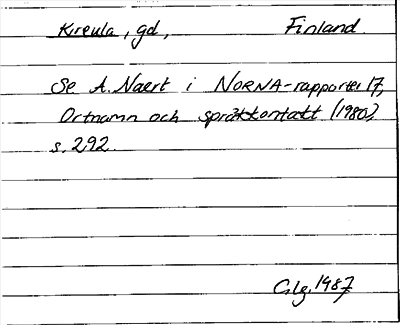 Kireula, gd, Finland.
Se A. Naert i NORNA-rapporter 17,
Ortnamn och språkkontakt (1980)
s. 292.
Glg. 1987